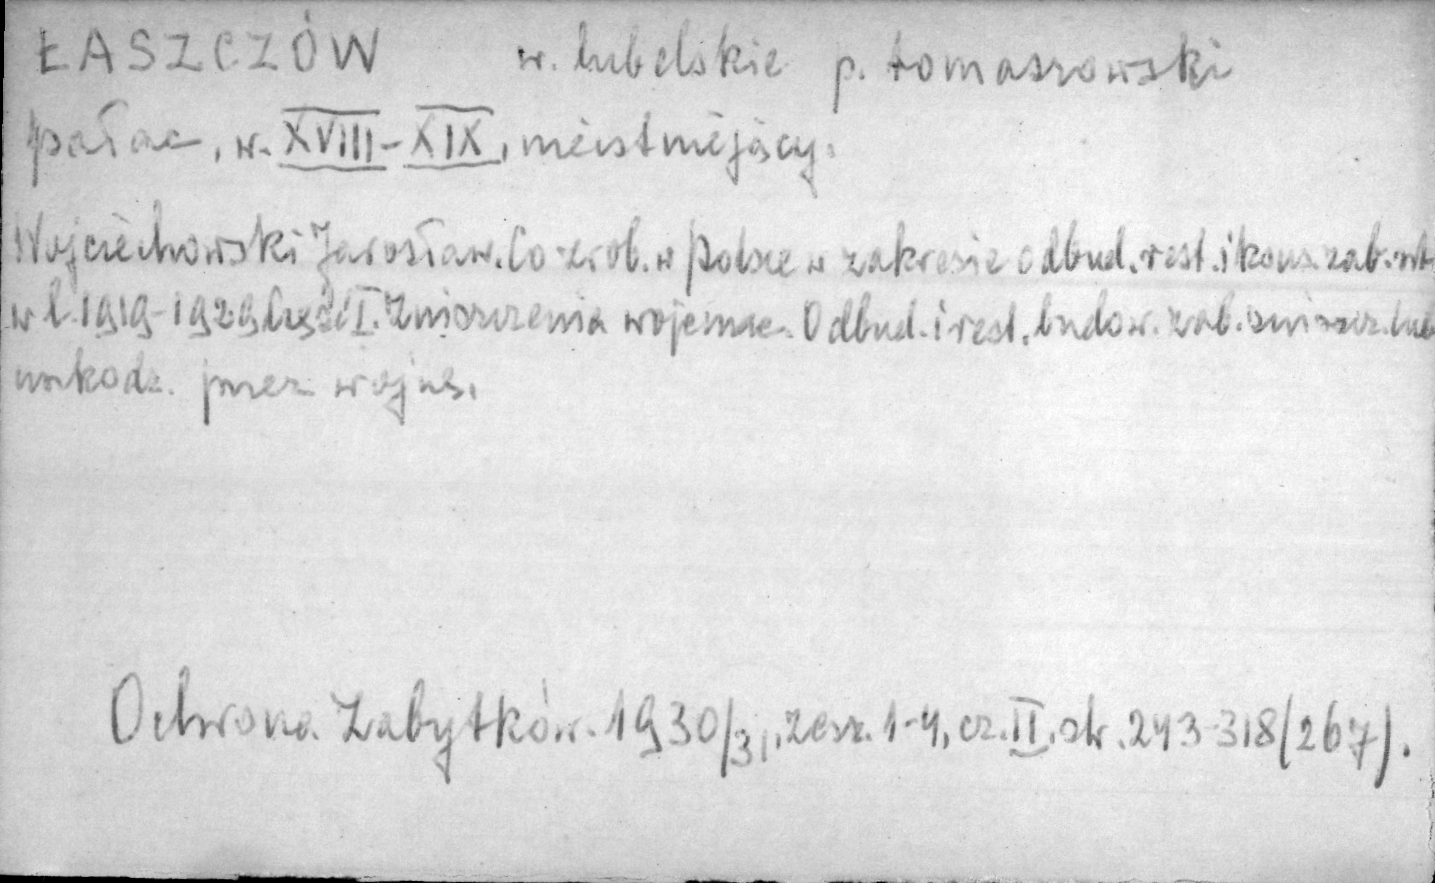 ŁASZCZÓW w. lubelskie p. tomaszowski
pałac, w. XVIII-XIX, nieistniejący.
Wojciechowski Jarosław. Co zrob. w Polsce w zakresie odbud. rest. i kons. zab. szt.
w l. 1919-1929 Część I. Zniszczenia wojenne. Odbud. i rest. budow. zab. zniszcz. lub
uszkodz. przez wojnę.
Ochrona Zabytków. 1930/31, zesz. 1-4, cz. II, str. 243-318 (267).